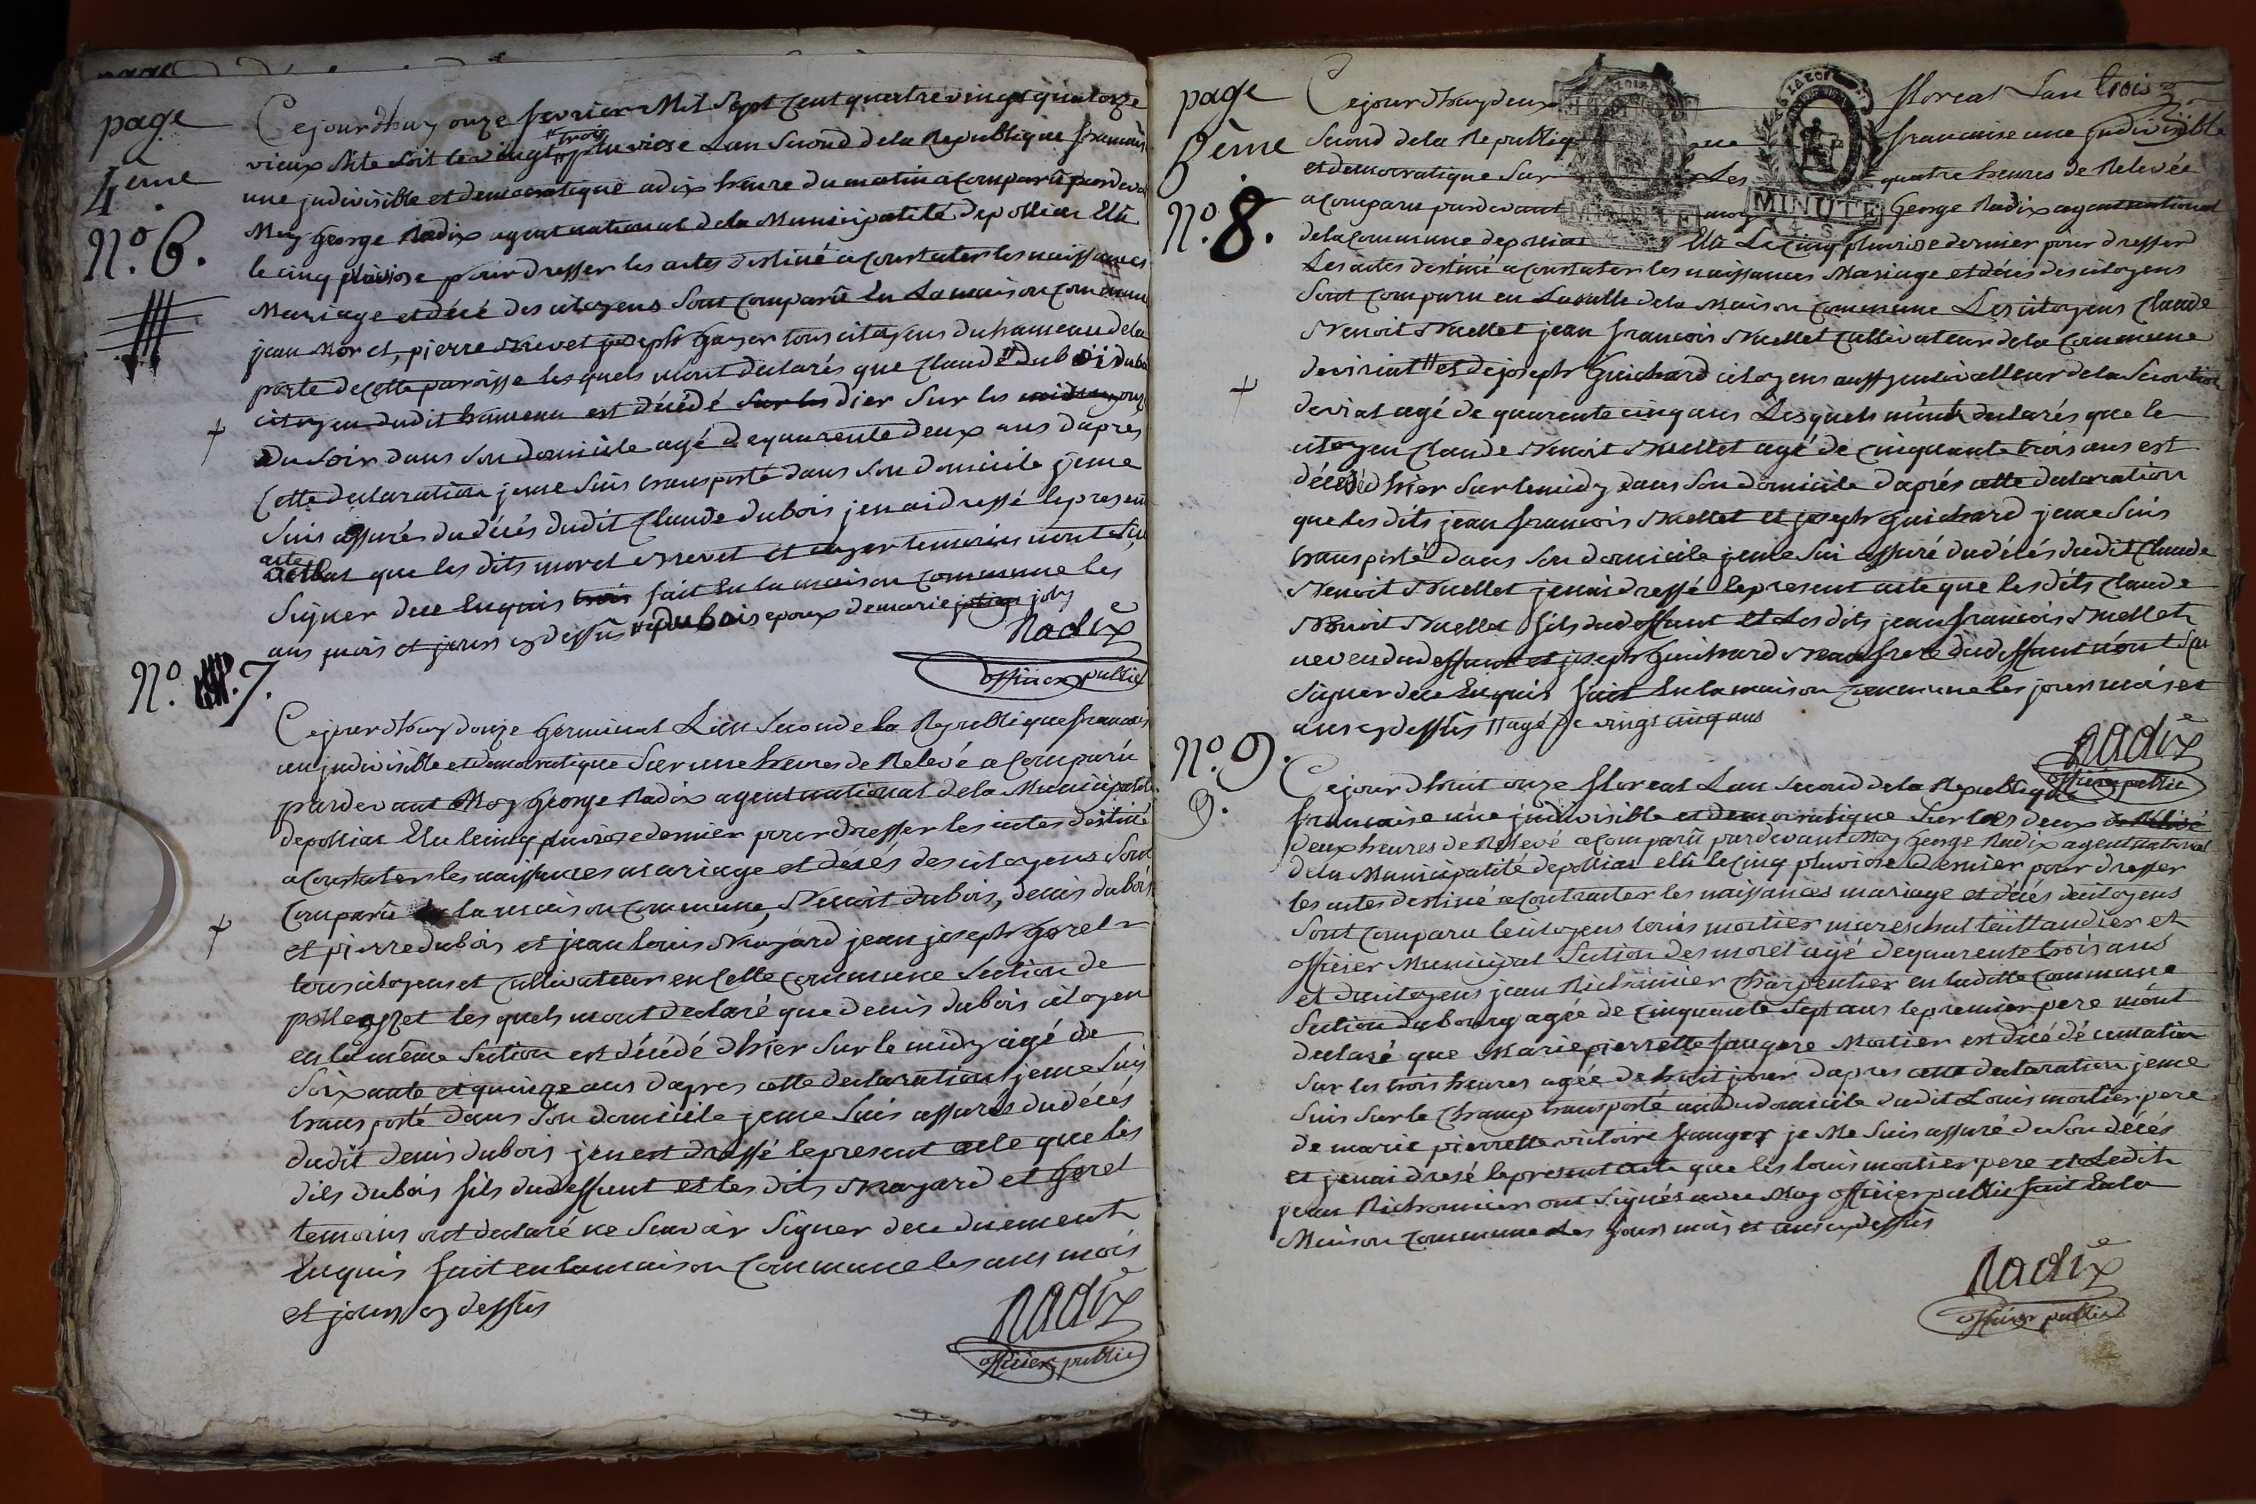 page
4eme
N.º 6.
Cejourdhuy onze fevrier Mil Sept Cent quatre vingt quatorze
vieux Stile soit le vingt trois pluviose Lan Second de la Republique francais
une judivisible et democratique a dix heure du matin a Comparu pardeva
Moy George Nadix agent national de la Municipalité depolliat Elu
le cinq pluviose pour dresser les actes destiné a Constater les naissances
Mariage et décé des citoyens Sont Comparû En La maison Commune
jean Moret, pierre Brevet joseph Gayer tous citoyens du hameau de la
poste de Cette paroisse lesquels mont declarés que Claude dubois
citoyen dudit hameau est décédé Sur les dier Sur les onze
du Soir dans Son domicile agé dequarente deux ans dapres
Cette declaration jeme Suis transporté dans Son domicile jeme
Suis assurés du décés dudit Claude dubois jen ai dressé le presen
acte que les dits moret Brevet et Gayer temoins nont Scu
Signer de ce Enquis trois fait En la maison Commune les
ans mois et jours cy dessûs dubois epoux de marie joly
Nadix
officier public
N.º 7.
Cejourdhuy douze Germinal Lan Second de la Republique francais
un judivisible et democratique Sur une heures de Relevé a Comparu
pardevant Moy George Nadix agent national de la Municipalité
depolliat Elu le cinq pluviose dernier pour dresser les actes destiné
a Constater les naissances mariage et décés des citoyens Sont
Comparû la maison Commune, Benoit dubois, denis dubois
et pierre dubois et jean louis Bragard jean joseph Goret
tous citoyens et Cultivateur en Cette Commune Section de
les quels mont declaré que denis dubois citoyen
en la même Section est décédé dhier Sur le midy agé de
Soixante et quinze ans dapres cette declaration jeme Suis
transporté dans Son domicile jeme Suis assurés du décés
dudit denis dubois jen est dressé le present acte que les
dits dubois fils du deffunt et les dits Bragard et Goret
temoins ont declaré ne Scavoir Signer de ce duement
Enquis fait en la maison Commune les ans mois
et jours cy dessûs
Nadix
officier public
page
eme
N.º 8.
Cejourdhuy deux floreal Lan trois
Second de la Republique francaise une judivisible
et democratique Sur Les quatre heures de Relevée
a Comparu pardevant moy George Nadix agent national
de la Commune depolliat Elu Le Cinq pluviose dernier pour dresser
Les actes destiné a Constater les naissances Mariage et décés des citoyens
Sont Comparu en La salle de la Maison Commune Les citoyens Claude
Benoit Buellet jean francois Buellet Cultivateur de la Commune
de viriat et de joseph Guichard citoyens aussy cultivateur de la Section
de viriat agé de quarente cinq ans Lesquels mônt declarés que le
citoyen Claude Benoit Buellet agé de cinquante trois ans est
décédé dhier Sur le midy dans Son domicile daprés cette declaration
que les dits jean francois Buellet et joseph Guichard jeme Suis
transporté dans Son domicile jeme Sui assuré du décés dudit Claude
Benoit Buellet jenai dressé le present acte que les dits Claude
Benoit Buellet fils du deffunt et Les dits jean francois Buellet
neveu du deffunt et joseph Guichard Beau frere du deffunt nônt Scu
Signer de ce Enquis fait En la maison Commune les jours mois et
ans cy dessûs agé de vingt cinq ans
Nadix
officier public
N.º 9.
9.
Cejourdhuit onze floreal Lan Second de la Republique
francaise une judivisible et democratique Sur les deux
deux heures de Relevé a Comparû pardevant Moy George Nadix agent national
de la Municipalité depolliat elû le Cinq pluviose dernier pour dresser
les actes destiné a Contracter les naissances mariage et décés de citoyens
Sont Comparu le citoyens louis mortier mareschal taillandier et
officier Municipal Section des moret agé dequarente trois ans
et du citoyens jean Richonnier Charpentier en la ditte Commune
Section du bourg agée de Cinquante Sept ans le premier pere mônt
declaré que Marie pierrette faugere Mortier est décédé ce matin
Sur les trois heures agée de huit jour dapres cette declaration jeme
Suis Sur le Champ transporté au dudomicile dudit Louis mortier pere
de marie pierrette victoire fauger je Me Suis assuré du Son décés
et jenai dresé le present acte que les louis mortier pere et Ledit
jean Richonnier ont Signés avec Moy officier public fait En la
Maison Commune Les jours mois et ans cy dessûs
Nadix
officier public
MINUTE
MINUTE